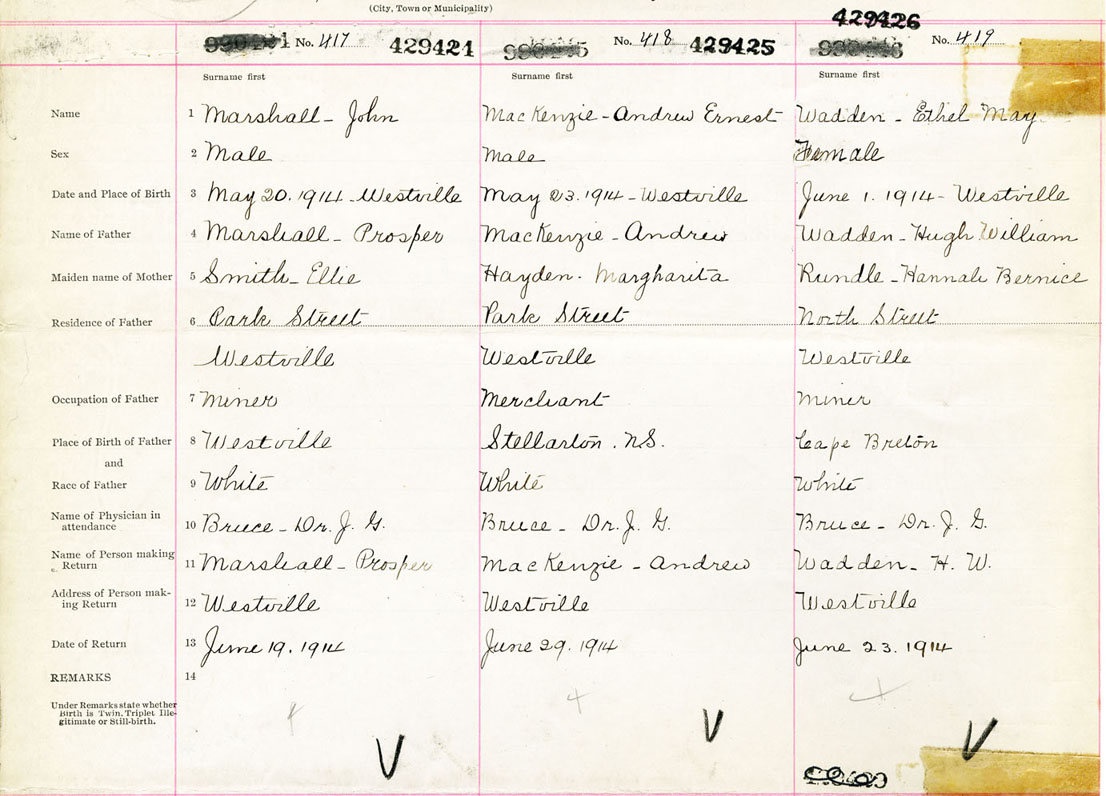 (City, Town or Municipality)
429426
No. 417 429424 No. 418 429425 No. 419
Surname first Surname first Surname first
Name 1 Marshall - John MacKenzie - Andrew Ernest Wadden - Ethel May
Sex 2 Male Male Female
Date and Place of Birth 3 May 20. 1914 - Westville May 23. 1914 - Westville June 1. 1914 - Westville
Name of Father 4 Marshall - Prosper MacKenzie - Andrew Wadden - Hugh William
Maiden name of Mother 5 Smith - Ellie Hayden - Margharita Rundle - Hannah Bernice
Residence of Father 6 Park Street Park Street North Street
Westville Westville Westville
Occupation of Father 7 Miner Merchant Miner
Place of Birth of Father 8 Westville Stellarton . N.S. Cape Breton
and
Race of Father 9 White White White
Name of Physician in
attendance 10 Bruce - Dr. J. G. Bruce - Dr. J. G. Bruce - Dr. J. G.
Name of Person making
Return 11 Marshall - Prosper MacKenzie - Andrew Wadden - H. W.
Address of Person mak-
ing Return 12 Westville Westville Westville
Date of Return 13 June 19. 1914 June 29. 1914 June 23. 1914
REMARKS 14
Under Remarks state whether
Birth is Twin, Triplet Ille-
gitimate or Still-birth.